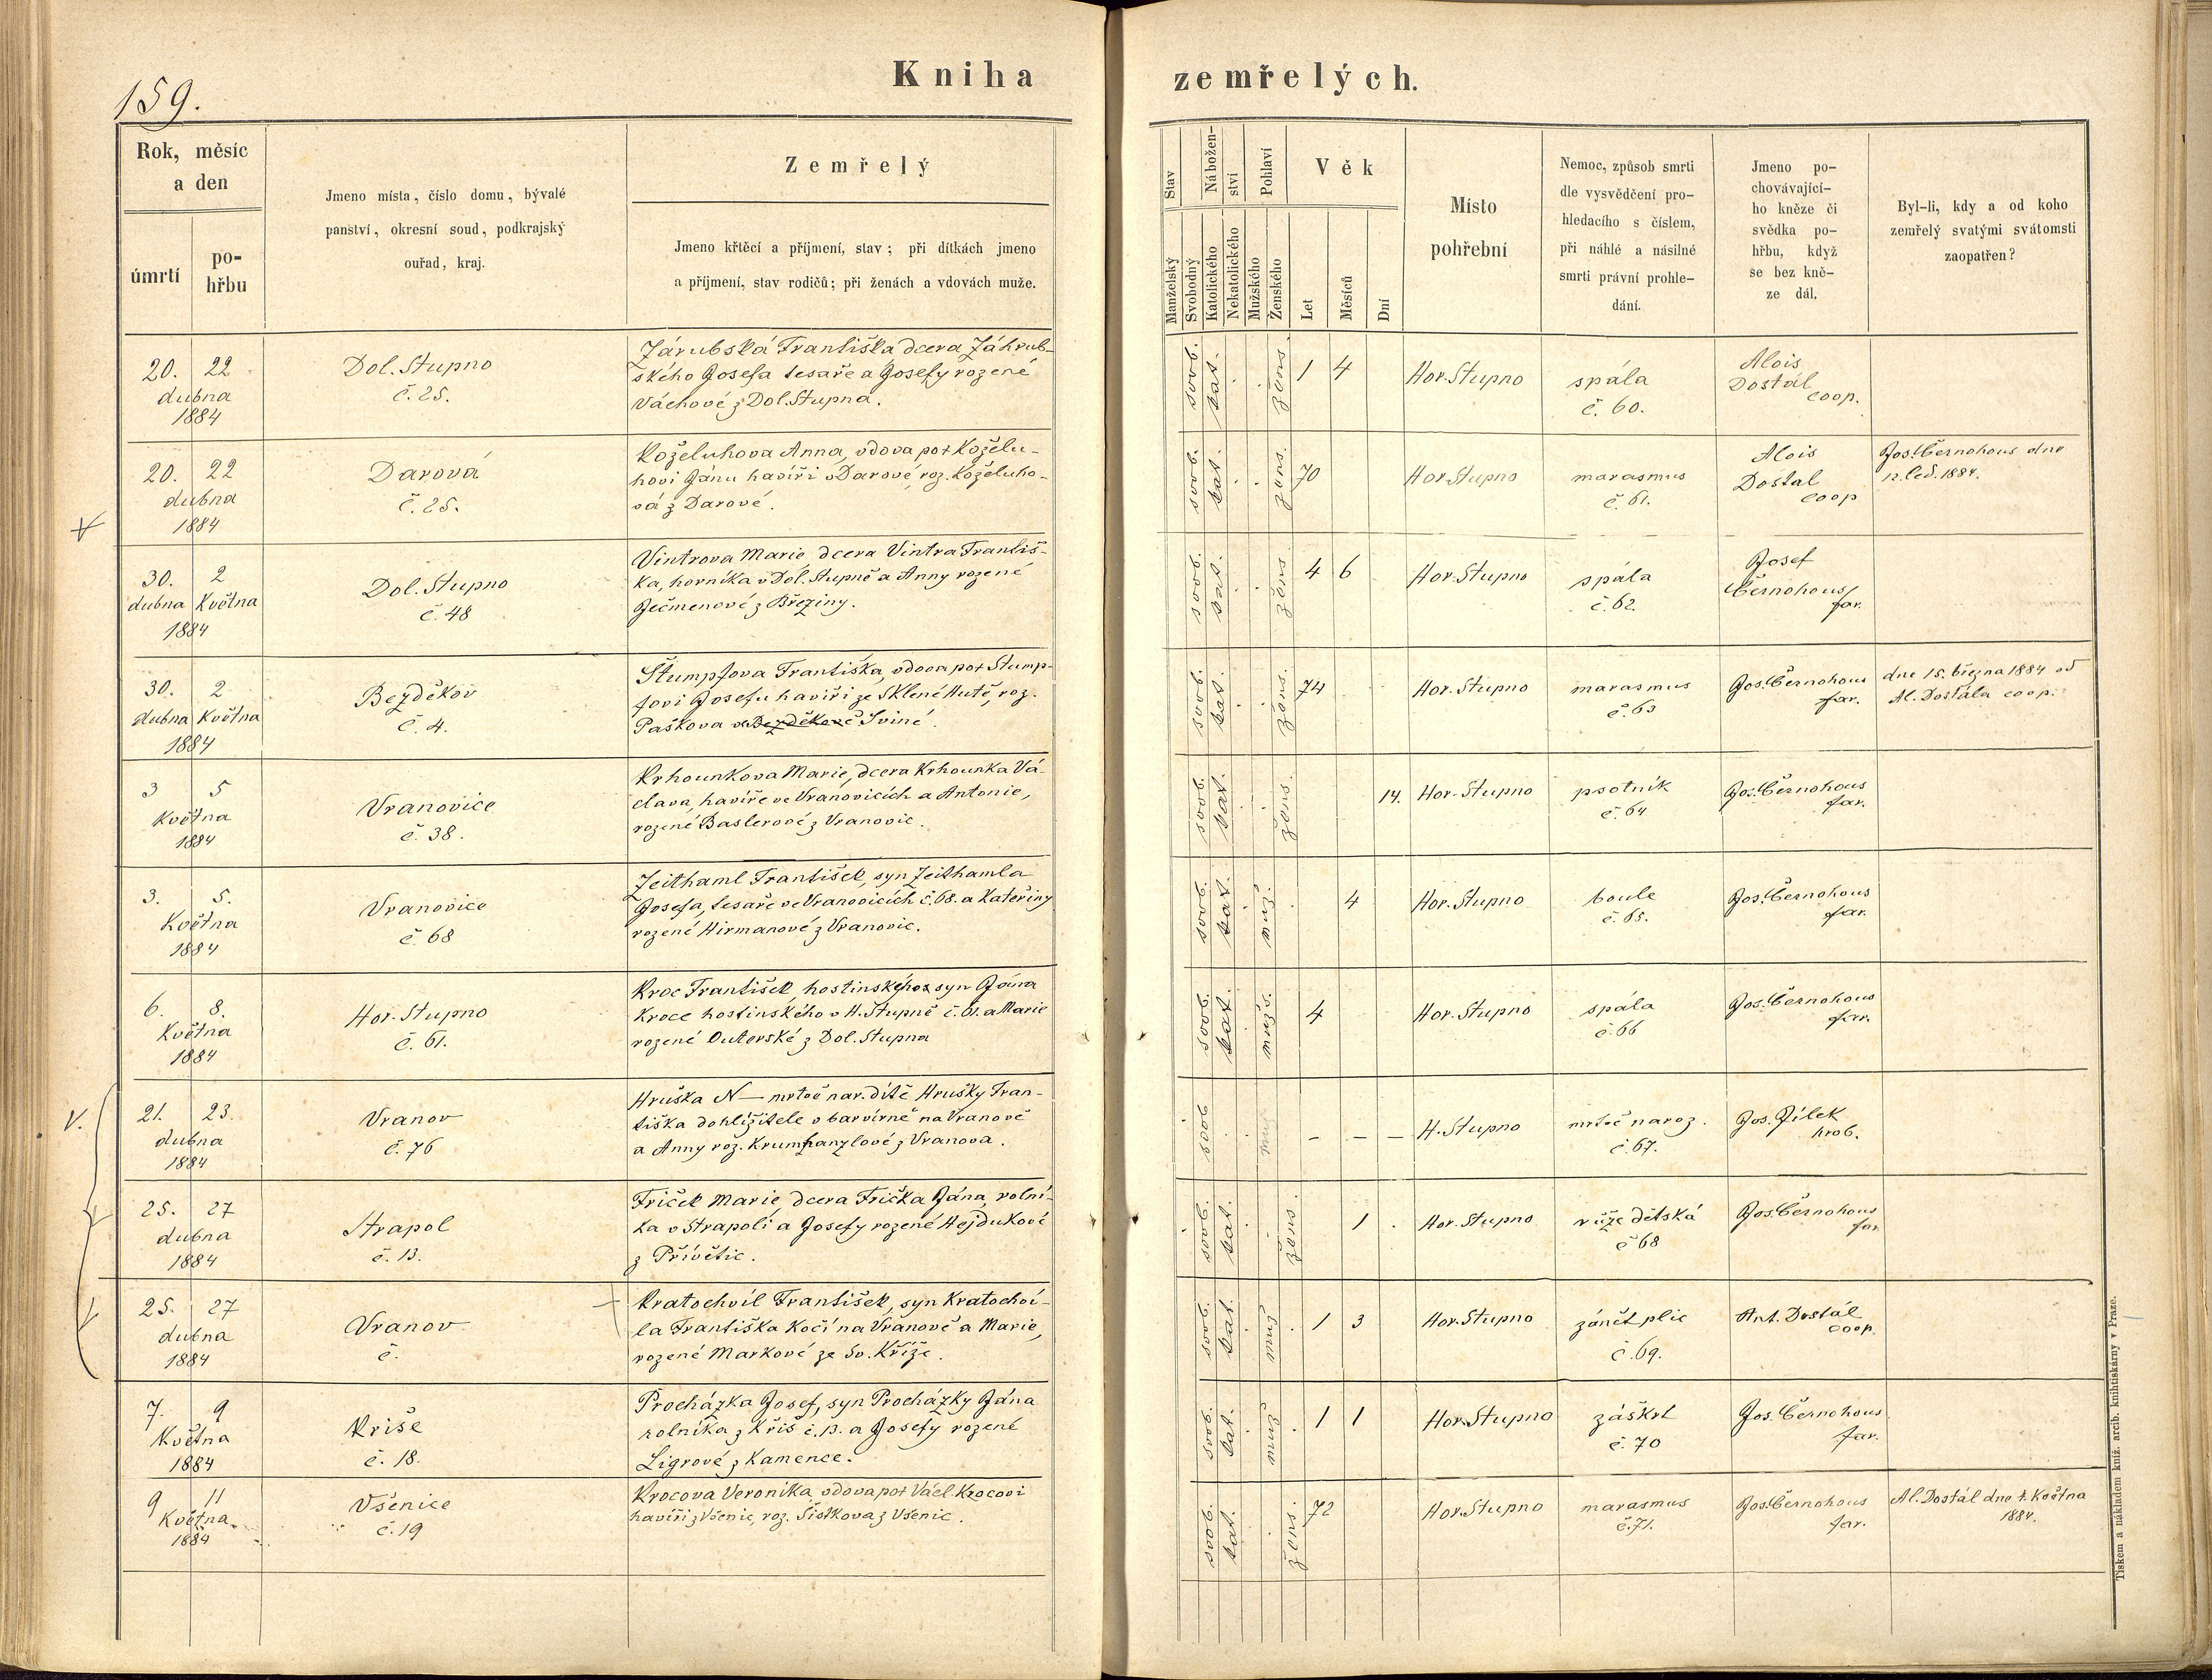 Kniha zemřelých.
159.
Rok, měsíc
a den
úmrtí
po-
hřbu
Jmeno místa, číslo domu, bývalé
panství, okresní soud, podkrajský
ouřad, kraj.
Zemřelý
Jmeno křtěcí a příjmení, stav; při dítkách jmeno
a příjmení, stav rodičů; při ženách a vdovách muže.
Stav
Manželský
Svobodný
Nábožen-
ství
Katolického
Nekatolického
Pohlaví
Mužského
Ženského
Věk
Let
Měsíců
Dní
Místo
pohřební
Nemoc, způsob smrti
dle vysvědčení pro-
hledacího s číslem,
při náhlé a násilné
smrti právní prohle-
dání.
Jmeno po-
chovávající-
ho kněze či
svědka po-
hřbu, když
se bez kně-
ze dál.
Byl-li, kdy a od koho
zemřelý svatými svátomsti
zaopatřen?
20. 22
dubna
1884
Dol. Stupno
č. 25.
Zárubská Františka dcera Záhrub-
ského Josefa tesaře a Josefy rozené
Váchové z Dol. Stupna.
svob. kat. žens. 1 4
Hor. Stupno
spála
č. 60.
Alois
Dostál
coop.
20. 22
dubna
1884
Darová
č. 25.
Koželuhova Anna, vdova po † Koželu-
hovi Jánu havíři v Darové roz. Koželuho-
vá z Darové.
svob. kat. žens. 70
Hor. Stupno
marasmus
č. 61.
Alois
Dostal
coop
Jos. Černohous dne
12. led. 1884.
30. 2
dubna Května
1884
Dol. Stupno
č. 48
Vintrova Marie dcera Vintra Františ-
ka, horníka v Dol. Stupně a Anny rozené
Ječmenové z Březiny.
svob. kat. žens. 4 6
Hor. Stupno
spála
č. 62.
Josef
Černohous
far.
30. 2
dubna Května
1884
Bezděkov
č. 4.
Štumpfova Františka, vdova po † Štump-
fovi Josefu havíři ze Sklené Hutě, roz.
Paškova ve Bezděkově Sviné.
svob. kat. žens. 74
Hor. Stupno
marasmus
č. 63
Jos. Černohous
far.
dne 15. března 1884 od
Al. Dostála coop.
3 5
Května
1884
Vranovice
č. 38.
Krhounkova Marie, dcera Krhounka Vá-
clava, havíře ve Vranovicích a Antonie,
rozené Baslerové z Vranovic.
svob. kat. žens. 14.
Hor. Stupno
psotník
č. 64
Jos. Černohous
far.
3. 5.
Května
1884
Vranovice
č. 68
Zeithaml František, syn Zeithamla
Josefa, tesaře ve Vranovicích č. 68. a Kateřiny
rozené Hirmanové z Vranovic.
svob. kat. muž. 4
Hor. Stupno
boule
č. 65.
Jos. Černohous
far.
6. 8.
Května
1884
Hor. Stupno
č. 61.
Kroc František, hostinského syn Jána
Kroce hostinského v H. Stupně č. 61. a Marie
rozené Outerské z Dol. Stupna
svob. kat. mužs. 4
Hor. Stupno
spála
č. 66
Jos. Černohous
far.
V.
21. 23.
dubna
1884
Vranov
č. 76
Hruška N — mrtvě nar. dítě Hrušky Fran-
tiška dohlížitele v barvírně na Vranově
a Anny roz. Krumhanzlové z Vranova.
svob muž – – –
H. Stupno
mrtvě naroz.
č. 67.
Jos. Jílek
hrob.
25. 27
dubna
1884
Strapol
č. 13.
Friček Marie, dcera Frička Jána, rolní-
ka v Strapoli a Josefy rozené Hejdukové
z Přívětic.
svob. kat. žens. 1
Hor. Stupno
růže dětská
č 68
Jos. Černohous
far.
25. 27
dubna
1884
Vranov
č.
Kratochvíl František, syn Kratochví-
la Františka Kočí na Vranově a Marie,
rozené Markové ze Sv. Kříže.
svob. kat. muž 1 3
Hor. Stupno
zánět plic
č. 69.
Ant. Dostál
coop.
7. 9
Května
1884
Kříše
č. 18.
Procházka Josef, syn Procházky Jána
rolníka z Kříš č. 13. a Josefy rozené
Ligrové z Kamence.
svob. kat. muž 1 1
Hor. Stupno
záškrt
č. 70
Jos. Černohous
far.
9 11
Května
1884
Všenice
č. 19
Krocova Veronika vdova po † Václ. Krocovi
havíři z Všenic, roz. Šistkova z Všenic.
svob. kat. žens. 72
Hor. Stupno
marasmus
č. 71.
Jos. Černohous
far.
Al. Dostál dne 4. Května
1884.
Tiskem a nákladem kníž. arcib. knihtiskárny v Praze.